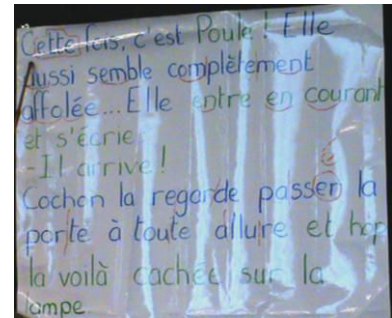 Cette fois, c'est Poule ! Elle
aussi semble complètement
affolée... Elle entre en courant
et s'écrie
- Il arrive !
Cochon la regarde passer la
porte à toute allure et hop
la voilà cachée sur la
lampe